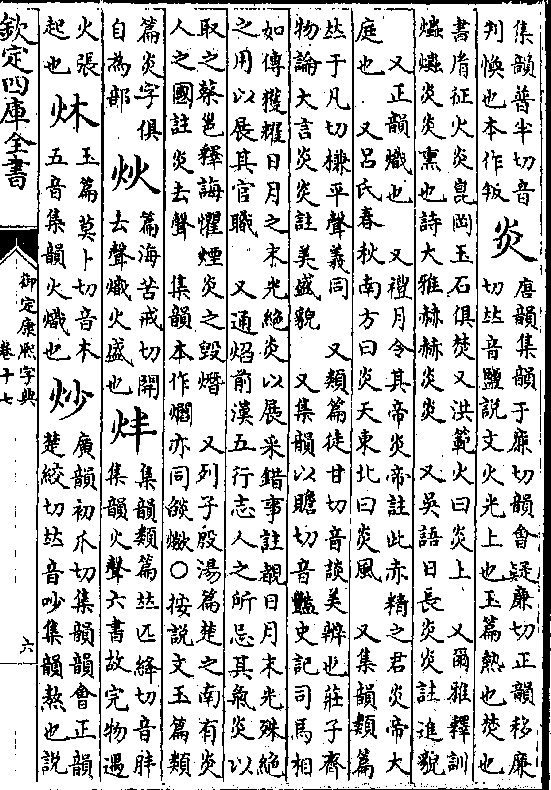 集韻普半切音
判㷳也本作㸞
炎
唐韻集韻于廉切韻會疑廉切正韻移廉
切𠀤音鹽說文火光上也玉篇熱也焚也
書胤征火炎崑岡玉石俱焚又洪範火曰炎上　又爾雅釋訓
爞爞炎炎熏也詩大雅赫赫炎炎　又吳語日長炎炎註進貌
又正韻熾也　又禮月令其帝炎帝註此亦精之君炎帝大
庭也　又呂氏春秋南方曰炎天東北曰炎風　又集韻類篇
𠀤于凡切㯺平聲義同　又類篇徒甘切音談美辨也莊子齊
物論大言炎炎註美盛貌　又集韻以贍切音豔史記司馬相
如傳獲耀日月之末光絶炎以展采錯事註覩日月末光殊絶
之用以展其官職　又通焰前漢五行志人之所忌其氣炎以
取之蔡邕釋誨懼煙炎之毀熸　又列子殷湯篇楚之南有炎
人之國註炎去聲　集韻本作爓亦同燄㷿○按說文玉篇類
篇炎字俱
自為部
炏
篇海苦戒切開
去聲熾火盛也
𤆗
集韻類篇𠀤匹絳切音胖
集韻火聲六書故完物遇
火張
起也
炑
玉篇莫卜切音木
五音集韻火熾也
炒
廣韻初爪切集韻韻會正韻
楚絞切𠀤音吵集韻熬也說
欽定四庫全書
御定康熙字典
卷十七
六